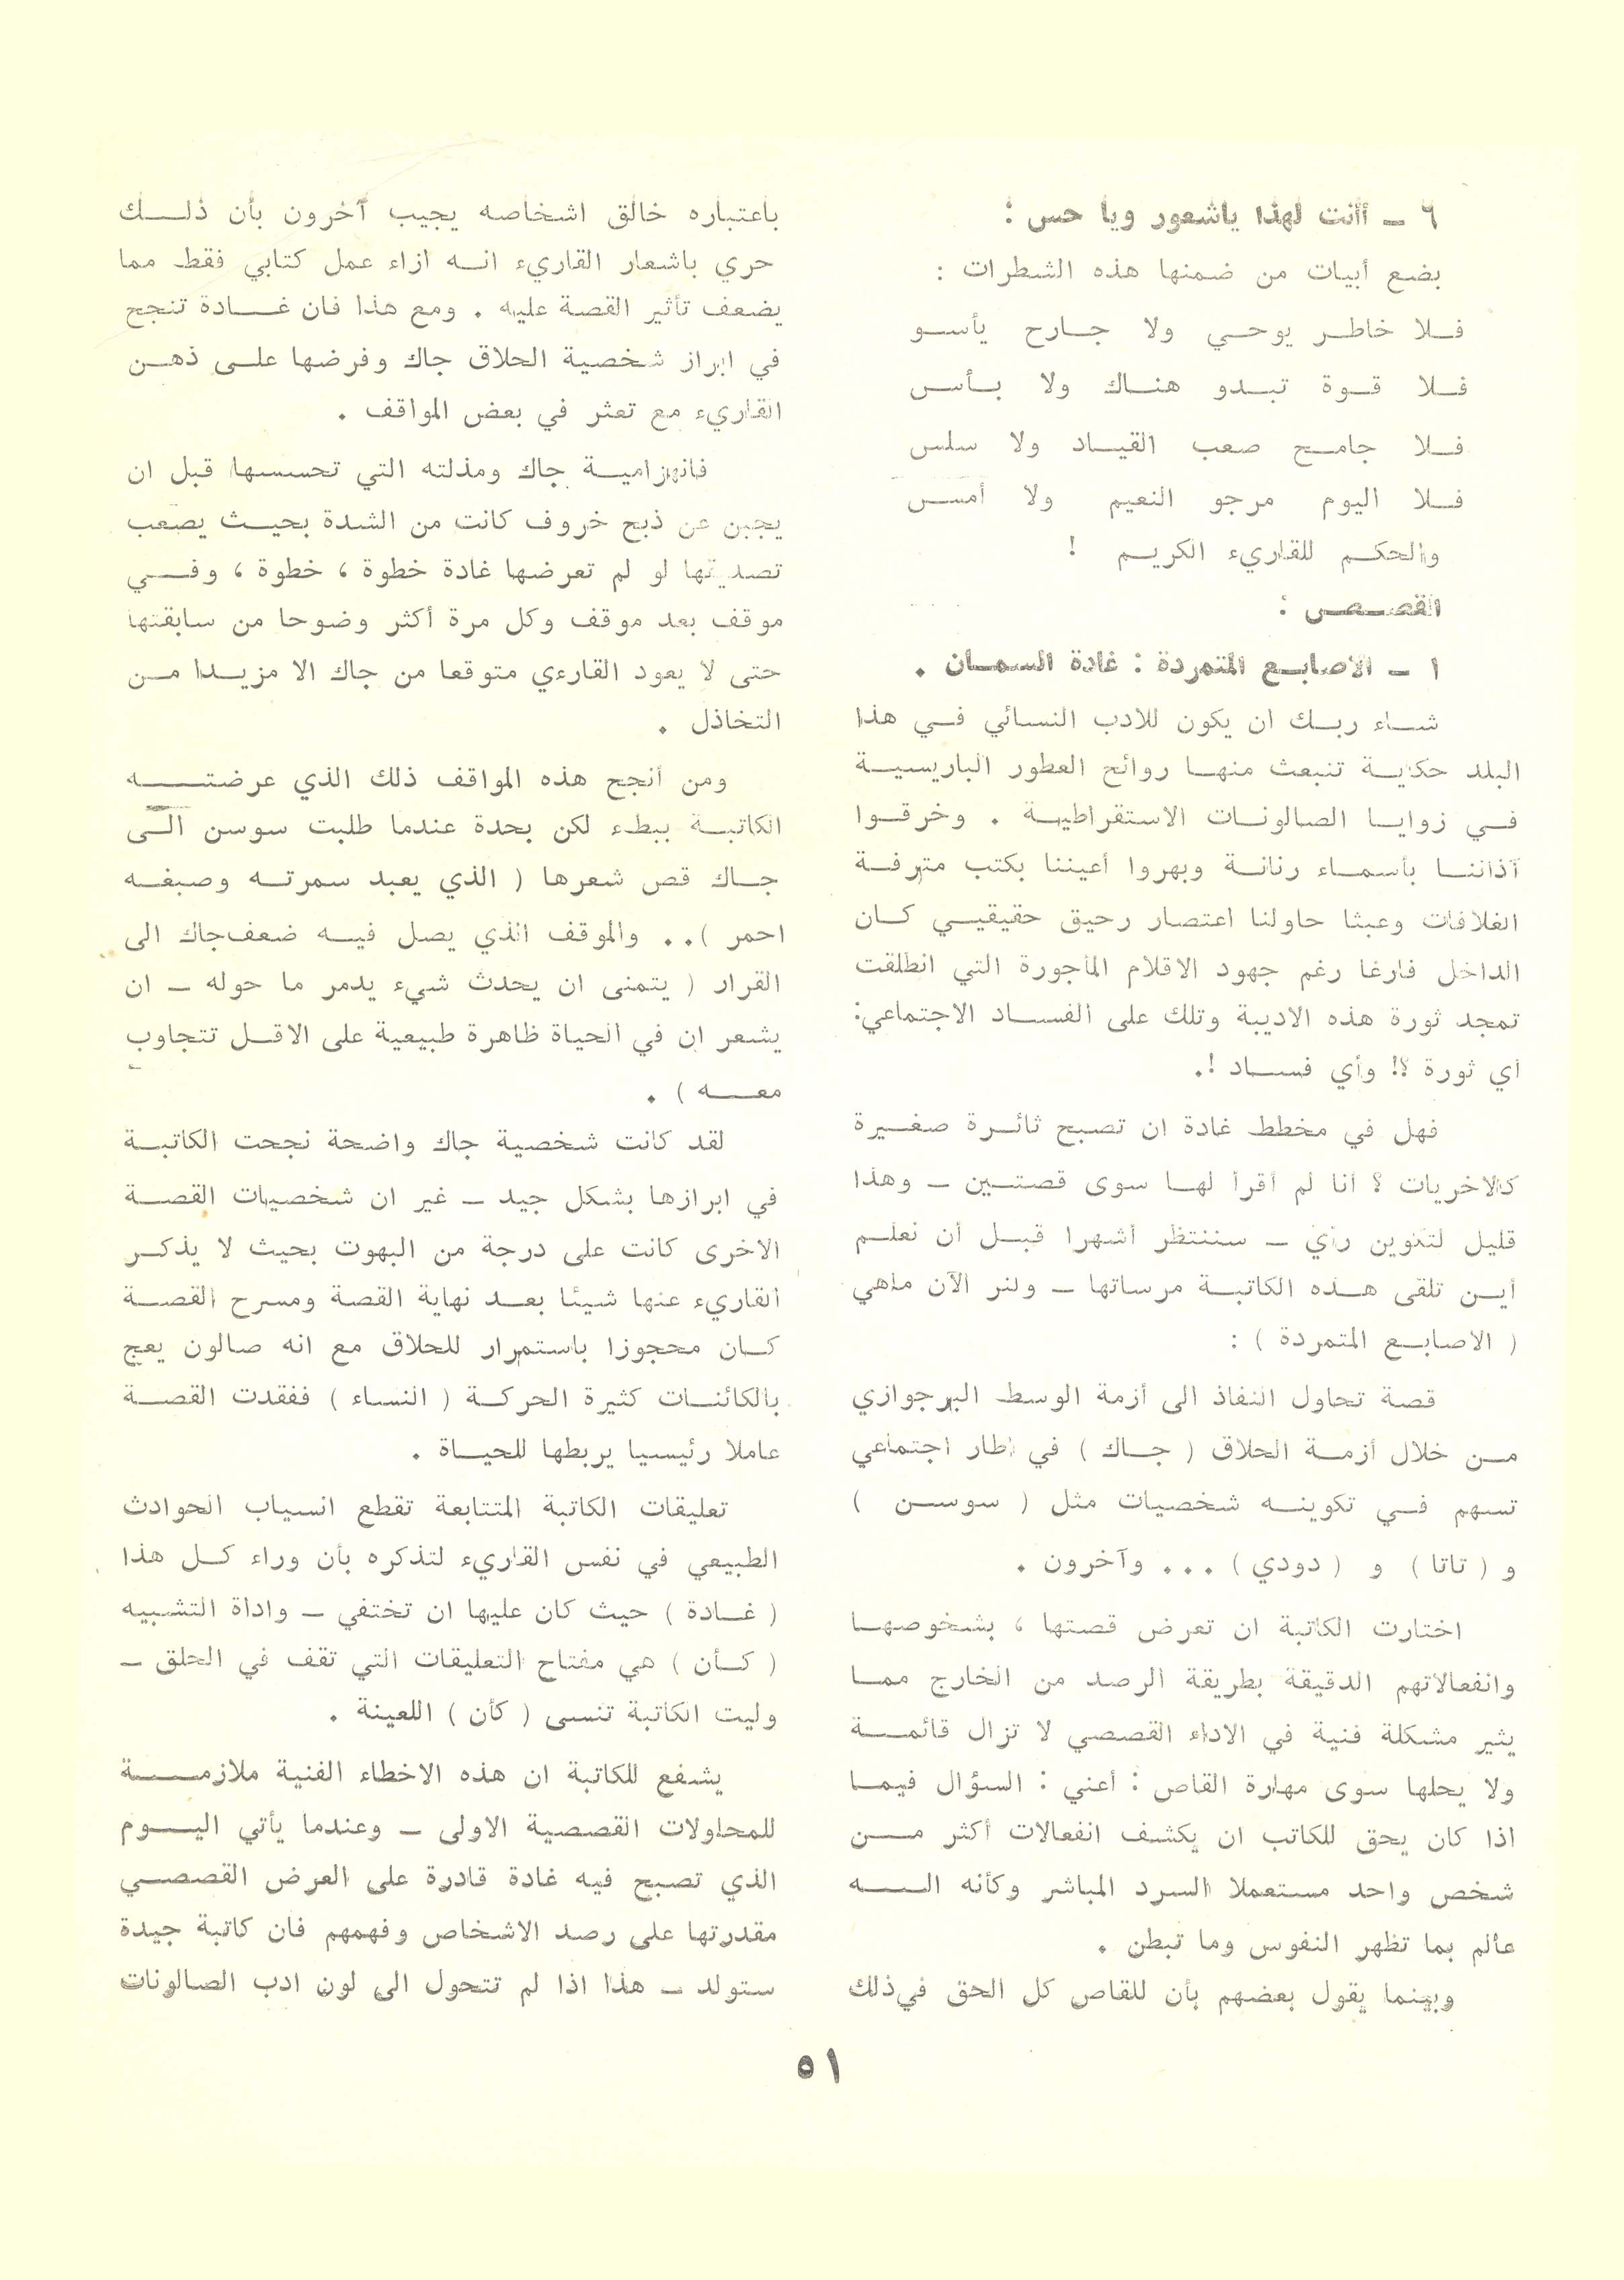 ٦ ـ أأنت لهذا ياشعور ويا حس :
بضع أبيات من ضمنها هذه الشطرات :
فلا خاطر يوحي ولا جارح يأسو
فلا قوة تبدو هناك ولا بأس
فلا جامح صعب القياد ولا سلس
فلا اليوم مرجو النعيم ولا أمس
والحكم للقاريء الكريم !
القصص :
١ ـ الاصابع المتمردة : غادة السمان .
شاء ربك ان يكون للادب النسائي في هذا
البلد حكاية تنبعث منها روائح العطور الباريسية
في زوايا الصالونات الاستقراطية . وخرقوا
آذاننا بأسماء رنانة وبهروا أعيننا بكتب مترفة
الغلافات وعبثا حاولنا اعتصار رحيق حقيقيي كان
الداخل فارغا رغم جهود الاقلام المأجورة التي انطلقت
تمجد ثورة هذه الاديبة وتلك على الفساد الاجتماعي:
أي ثورة ؟! وأي فساد !.
فهل في مخطط غادة ان تصبح ثائرة صغيرة
كالاخريات ؟ أنا لم أقرأ لها سوى قصتين ـ وهذا
قليل لتكوين رأي ـ سننتظر أشهرا قبل أن نعلم
أين تلقى هذه الكاتبة مرساتها ـ ولنر الآن ماهي
( الاصابع المتمردة ) :
قصة تحاول النفاذ الى أزمة الوسط البرجوازي
من خلال أزمة الحلاق ( جاك ) في اطار اجتماعي
تسهم في تكوينه شخصيات مثل ( سوسن )
و ( تاتا ) و ( دودي ) ... وآخرون .
اختارت الكاتبة ان تعرض قصتها ، بشخوصها
وانفعالاتهم الدقيقة بطريقة الرصد من الخارج مما
يثير مشكلة فنية في الاداء القصصي لا تزال قائمة
ولا يحلها سوى مهارة القاص : أعني : السؤال فيما
اذا كان يحق للكاتب ان يكشف انفعالات أكثر من
شخص واحد مستعملا السرد المباشر وكأنه اله
عالم بما تظهر النفوس وما تبطن .
وبينما يقول بعضهم بأن للقاص كل الحق في ذلك
باعتباره خالق اشخاصه يجيب آخرون بأن ذلك
حري باشعار القاريء انه ازاء عمل كتابي فقط مما
يضعف تأثير القصة عليه . ومع هذا فان غادة تنجح
في ابراز شخصية الحلاق جاك وفرضها على ذهن
القاريء مع تعثر في بعض المواقف .
فانهزامية جاك ومذلته التي تحسسها قبل ان
يجبن عن ذبح خروف كانت من الشدة بحيث يصعب
تصديقها لو لم تعرضها غادة خطوة ، خطوة ، وفي
موقف بعد موقف وكل مرة أكثر وضوحا من سابقتها
حتى لا يعود القارءي متوقعا من جاك الا مزيدا من
التخاذل .
ومن أنجح هذه المواقف ذلك الذي عرضته
الكاتبة ببطء لكن بحدة عندما طلبت سوسن الى
جاك قص شعرها ( الذي يعبد سمرته وصبغه
احمر ).. والموقف الذي يصل فيه ضعف جاك الى
القرار ( يتمنى ان يحدث شيء يدمر ما حوله ـ ان
يشعر ان في الحياة ظاهرة طبيعية على الاقل تتجاوب
معه ) .
لقد كانت شخصية جاك واضحة نجحت الكاتبة
في ابرازها بشكل جيد ـ غير ان شخصيات القصة
الاخرى كانت على درجة من البهوت بحيث لا يذكر
القاريء عنها شيئا بعد نهاية القصة ومسرح القصة
كان محجوزا باستمرار للحلاق مع انه صالون يعج
بالكائنات كثيرة الحركة ( النساء ) ففقدت القصة
عاملا رئيسيا يربطها للحياة .
تعليقات الكاتبة المتتابعة تقطع انسياب الحوادث
الطبيعي في نفس القاريء لتذكره بأن وراء كل هذا
( غادة ) حيث كان عليها ان تختفي ـ واداة التشبيه
( كأن ) هي مفتاح التعليقات التي تقف في الحلق ـ
وليت الكاتبة تنسى ( كأن ) اللعينة .
يشفع للكاتبة ان هذه الاخطاء الفنية ملازمة
للمحاولات القصصية الاولى ـ وعندما يأتي اليوم
الذي تصبح فيه غادة قادرة على العرض القصصي
مقدرتها على رصد الاشخاص وفهمهم فان كاتبة جيدة
ستولد ـ هذا اذا لم تتحول الى لون ادب الصالونات
٥١